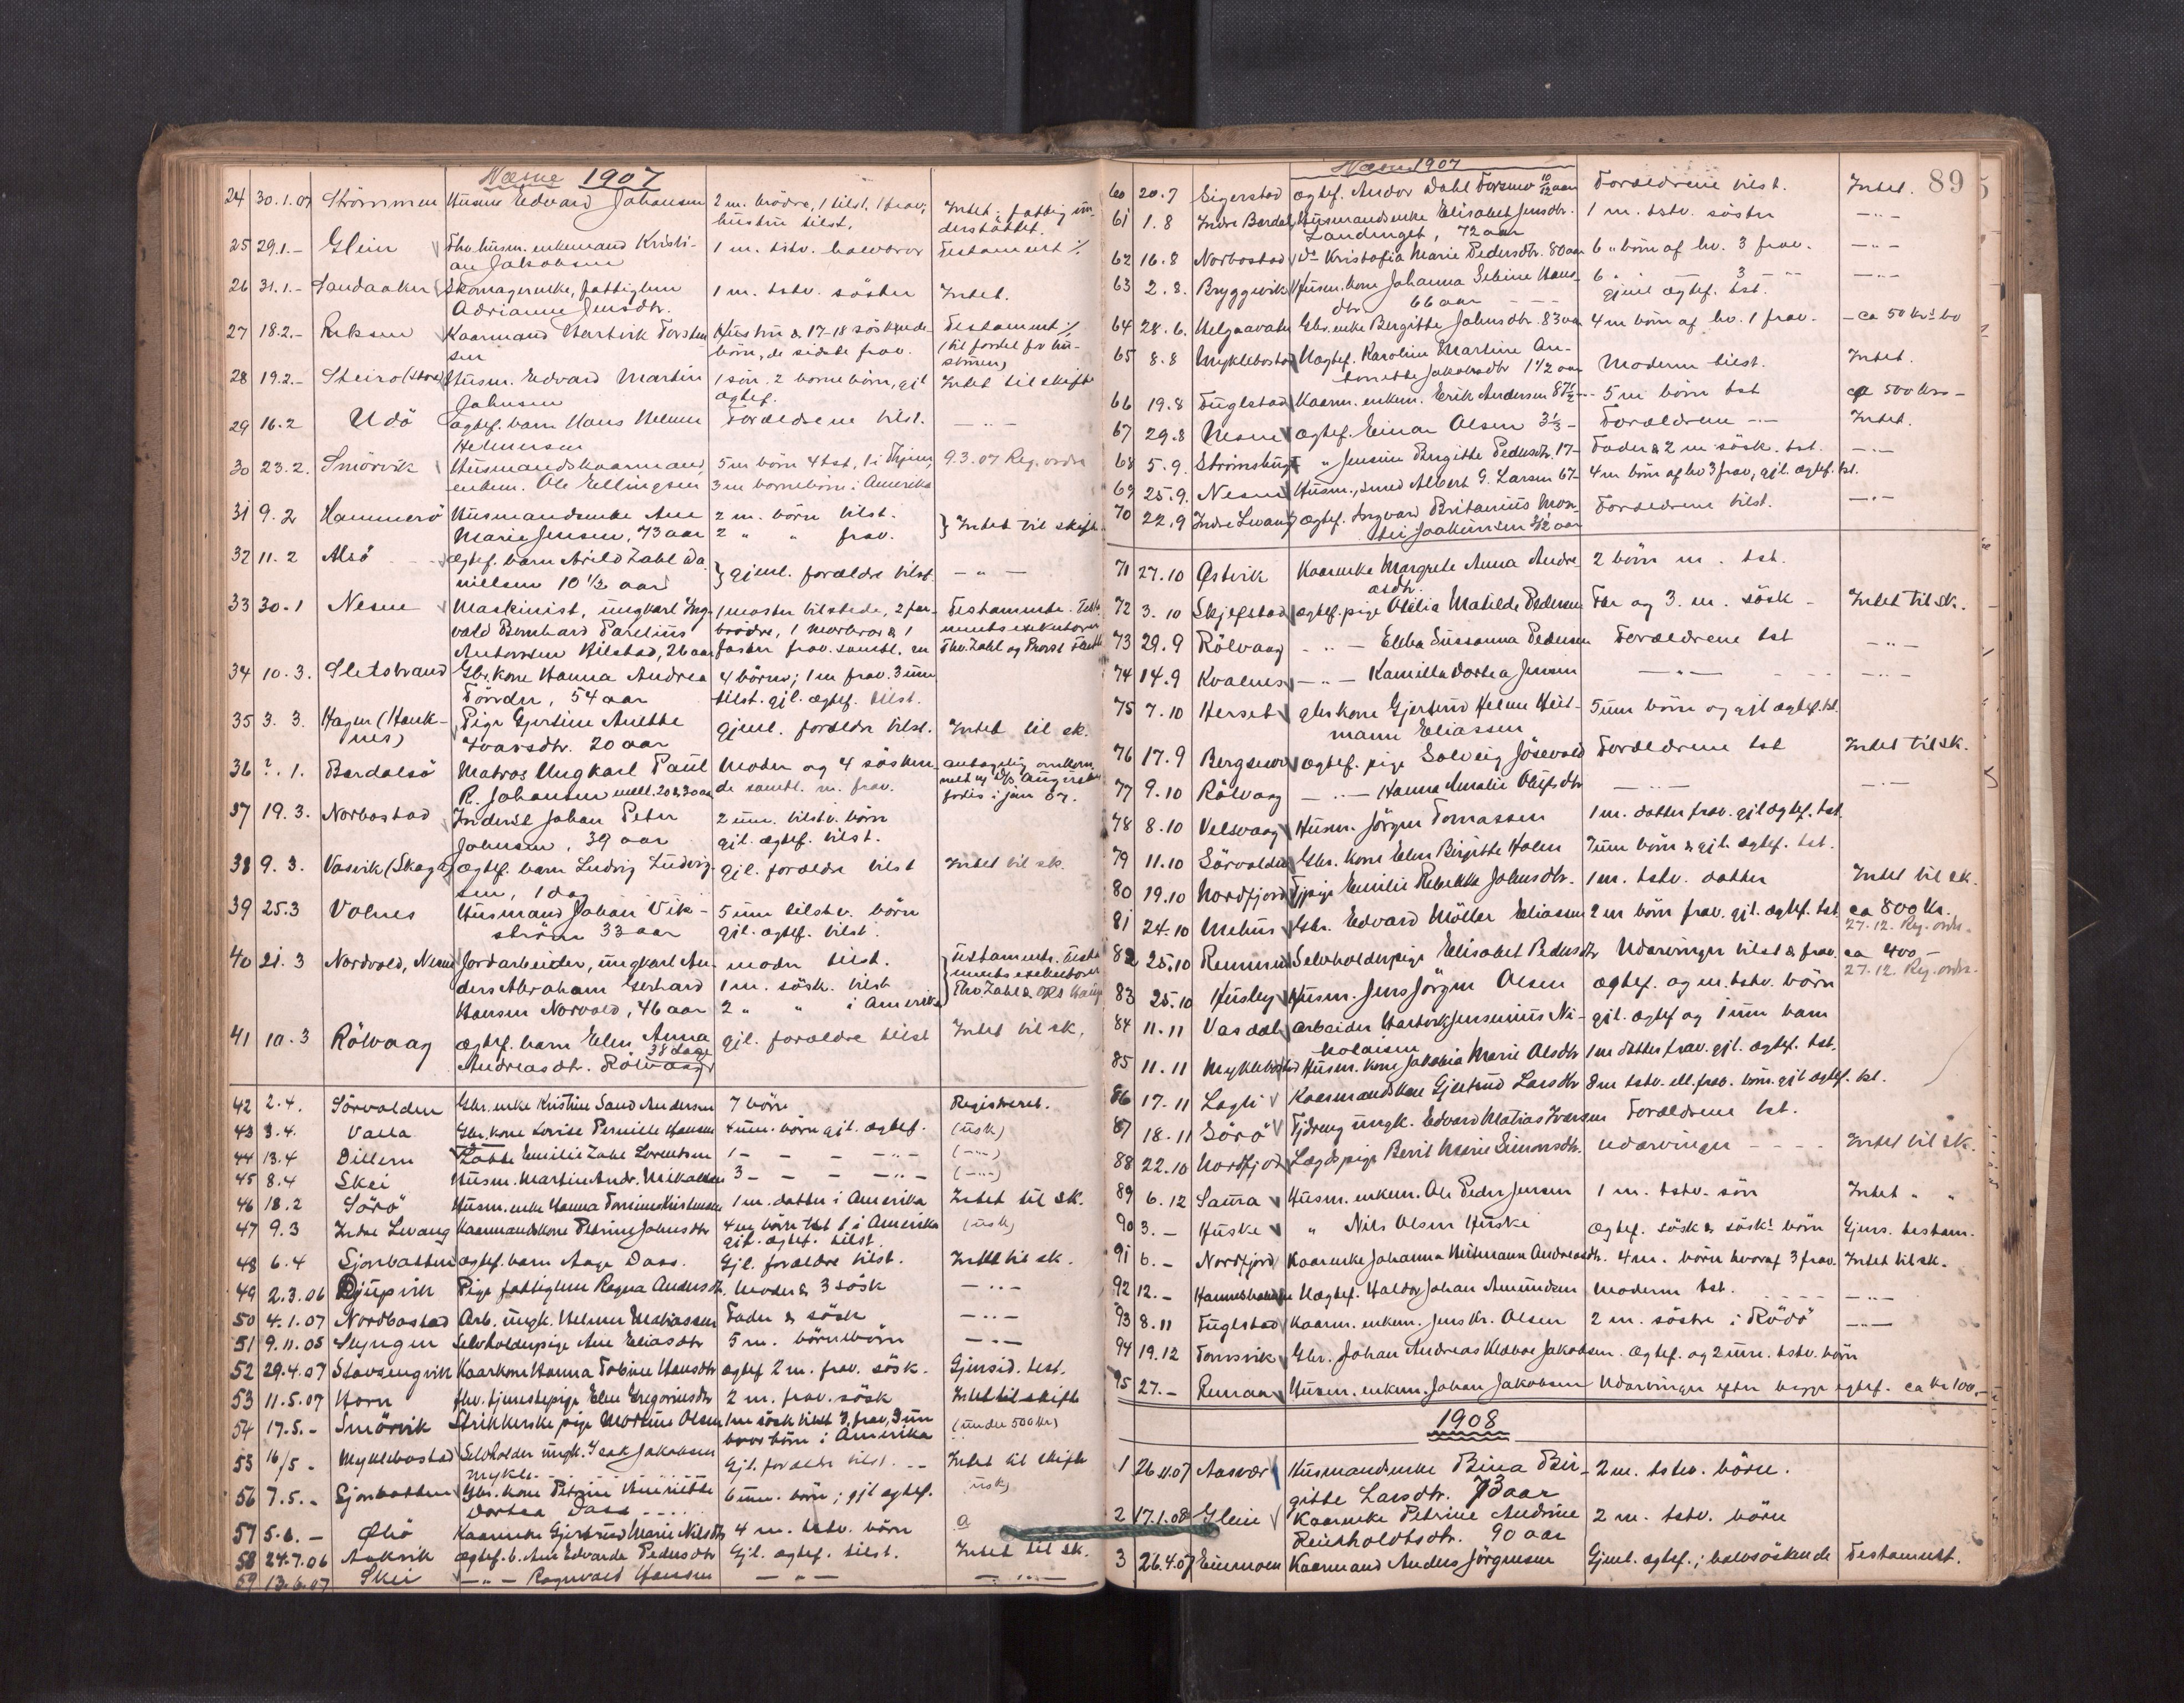 Nesne 1907
24 30.1.07 Strömmen Husm Edvard Johansen 2 m. brödre, 1 tilst. 1 frav; Intet; fattig un-
hustru tilst. derstöttet.
25 29.1.- Glein Fhv. husm. enkemand Kristi- 1 m. tstv. halvbror Testament %
an Jakobsen
26 31.1.- Sandaaker Skomagerenke, fattiglem 1 m. tstv. söster Intet.
Adriane Jensdtr.
27 18.2.- Kaarmand Hartvik Torsten Hustru & 17-18 söskende- Testament %
sen börn, de sidste frav. (til fordel for hu-
struen)
28 19.2.- Husm. Edvard Martin 1 sön. 2 börnebörn, gjl Intet til skifte
Johnsen ægtef.
29 16.2 Udö ægtef. barn Hans Helmer Forældrene tilst. — " —
Helmersen
30 23.2. Smörvik Husmandskaarmand, 5 m börn 4 tst, 1 i 9.3.07 Reg. ordre
enkem. Ole Ellingsen 3 m barnebörn i Amerika
31 9.2 Hammerö Husmandsenke Ane 2 m. börn tilst.
Marie Jensen, 73 aar 2 " " frav. } Intet til skifte
32 11.2 Alsö ægtef. barn Arild Zahl Da
nielsen 10 1/2 aar } gjenl. forældre tilst. — " —
33 30.1 Nesne Maskinist, ungkarl Ing- 1 moster tilstede, 2 far- Testamente. Testa-
vald Bernhard Parelius brödre, 1 morbror & 1 ments exekutorer
Antonsen Hilstad, 26 aar faster frav. samtl. m Fhv. Zahl og Provst
34 10.3. Sletstrand Gbr. kone Hanna Andrea 4 börn; 1 m frav. 3 um
54 aar tilst. gjl. ægtef. tilst.
35 3.3. Hagen (Hauk- Pige Gjertine Anette gjenl. forældre tilst. Intet til sk.
nes) Ivarsdtr. 20 aar
36 ?.1. Bardalsö Matros Ungkarl Paul Moder og 4 sösken- antagelig omkom
R. Johansen mell. 20 & 30 aar de samtl. m. frav.
forlis i jan 07.
37 19.3. Norbostad Inderst Johan Peter 2 um. tilstv. börn
Johnsen, 39 aar gjl. ægtef. tilst.
38 9.3. Vasvik (Skaga) ægtef. barn Ludvig Ludvig- gjl. forældre tilst Intet til sk.
sen, 1 dag
39 25.3 Volnes Husmand Johan Vik- 5 um tilstv. börn
ström 33 aar gjl. ægtef. tilst.
40 21.3 Nordvold, Nesne Jordarbeider, ungkarl An- moder tilst. Testamente. Testa-
ders Abraham Gerhard 1 m. sösk. tilst ments exekutorer
Hansen Norvold, 46 aar 2 " " i Amerika Fhv. Zahl &
41 10.3 Rölvaag ægtef. barn Elen Anna gjl. forældre tilst Intet til sk.
38 dage
Andreasdtr. Rölvaag
42 2.4. Sörvolden Gbr. enke Kristine Sand Andersen 7 börn Registreret.
43 3.4. Valla Gbr. kone Lovise Pernille Hansen 4 um. börn gjl. ægtef. (usk)
44 13.4 Dillern Emilie Zahl Lorentsen 1 - - - - " - (- " -)
45 8.4 Skei Husm. Martin Andr. Mikalsen 3 - - - - " - (- " -)
46 18.2 Sörö Husm. enke Hanna 1 m. datter i Amerika Intet til sk.
47 9.3 Indre Levang Kaarmandskone Petrine Johnsdtr 4 m börn tst 1 i Amerika (usk)
gjl. ægtef. tilst.
48 6.4 Sjonbotten ægtef. barn Aage Dass. Gjl. forældre tilst. Intet til sk.
49 2.3.06 Djupvik Pige fattiglem Ragna Andersdtr. Moder & 3 sösk — " —
50 4.1.07 Nordbostad Arb. ungk. Helmer Mathiassen Fader & sösk — " —
51 9.11.05 Selvholderpige Ane Eliasdtr 5 m. börnebörn — " —
52 29.4.07 Kaarkone Hanna Tobine Hansdtr ægtef 2 m. frav. sösk. Gjensid. test.
53 11.5.07 Horn fhv. tjenestepige Elen Gregoriusdtr 2 m. frav. sösk Intet til skifte
54 17.5.- Smörvik Strikkerske pige Martine Olsen 1 m sösk tilst 3 frav, 3 um (under 500 kr)
brorbörn i Amerika
55 16/5 - Myklebostad Selvholder ungk. Isak Jakobsen Gjl. forældre tilst. -- Intet til skifte
Mykle-
56 7.5.- Sjonbotten Gbr. kone Petrine Anriette 6 um. börn; gjl ægtef. (usk)
Dortea Dass ----
57 5.6.- Öksö Kaarenke Gjertrud Marie Nilsdtr 4 m. tstv. börn 0
58 24.7.06 Aakvik ægtef. b. Ane Edvarda Pedersdtr Gjl. ægtef. tilst. Intet til sk.
59 13.6.07 Skei — " — Ragnvald Hansen — " — — " —
Nesne 1907 89
60 20.7 Sigerstad ægtef. Andor Dahl 10/12 aar Forældrene tilst. Intet.
61 1.8 Indre Bardal Husmandsenke Elisabet Jensdtr. 1 m. tstv. söster — " —
Landinget, 72 aar
62 16.8 Norbostad do Kristofia Marie Pedersdtr. 80 aar 6 " börn af hv. 3 frav. — " —
63 2.8. Bryggvik Husm. kone Johanna Seline Hans- 6 " — 3 — " — " —
dtr. 66 aar --- gjenl ægtef. tst.
64 28.6. Helgaavatn Gbr. enke Bergitte Johnsdtr. 83 aar 4 m börn af hv. 1 frav. - ca 50 kr bo
65 8.8 Myklebostad Uægtef. Karoline Martine An- Moderen tilst. Intet.
tonette Jakobsdtr 1 1/2 aar
66 19.8 Fuglstad Kaarm. enkem. Erik Andersen 87 1/2 -- 5 m börn tst ca 500 kr -
67 29.8 Nesne ægtef. Einar Olsen 3 1/3 - Forældrene -- Intet.
68 5.9. " Jensine Birgitte Pedersdtr. 17 - Fader & 2 m sösk. tst. — " —
69 25.9. Nesne Husm., smed Albert G. Larsen 67 - 4 m börn af hv 3 frav, gjl. ægtef. tst.
70 22.9 Indre Levang ægtef. Ingvard Britanius Mon- Forældrene tilst. — " —
Joakimsen aar
71 27.10 Østvik Kaarenke Margrete Anna Andre 2 börn m. tst.
asdtr.
72 3.10 Skjefstad ægtef. pige Otelia Matilde Pedersen Far og 3. m. sösk - Intet til sk.
73 29.9 Rölvaag — " — Ebba Sussanna Pedersen Forældrene tst — " —
74 14.9 Kvalnes — " — Kamilla Dortea Jensen — " — — " —
75 7.10 Herset gbr. kone Gjertrud Helene Heit- 5 um börn og gjl ægtef. tst.
mann Eliassen
76 17.9 Bergsnev ægtef. pige Solveig Jösevold Forældrene tst Intet til sk.
77 9.10 Rölvaag — " — Hanna Amalie Olufsdtr — " — — " —
78 8.10 Velsvaag Husm. Jörgen Tomassen 1 m. datter frav. gjl ægtef. tst
79 11.10 Sörvolden Gbr. kone Elen Birgitte Holen 7 um börn & gjl. ægtef. tst.
80 19.10 Nordfjord Tjpige Emilie Rebekka Johnsdtr. 1 m. tstv. datter Intet til sk.
81 24.10 Mehus Gbr. Edvard Möller Eliassen 2 m börn frav. gjl. ægtef. tst ca 800 kr.
27.12. Reg. ordre.
82 25.10 Remmen Selvholderpige Elisabet Pedersdtr Udarvinger tilst & frav. ca 400,-
27.12. Reg. ordre.
83 25.10 Husby Husm. Jens Jörgen Olsen ægtef. og m. tstv. börn
84 11.11 Vasdal arbeider Hartvik Jensenius Ni- gjl. ægtef og 1 um barn
kolaisen
85 11.11 Myklebostad Husm. kone Jakobia Marie Olsdtr 1 m datter frav. gjl. ægtef. tst.
86 17.11 Lagli Kaarmandskone Gjertrud Larsdtr 8 m tstv. ell. frav. börn. gjl ægtef. tst.
87 18.11 Sörö Tjdreng ungk. Edvard Matias Ivarsen Forældrene tst.
88 22.10 Nordfjord Lægdspige Berit Marie Simonsdtr. udarvinger ---- Intet til sk.
89 6.12 Saura Husm. enkem. Ole Peder Jensen 1 m. tstv. sön Intet " "
90 3.- Huske " Nils Olsen Huske ægtef. sösk & sösk! börn Gjens. testam.
91 6.- Nordfjord Kaarenke Johanna Heitmann Andreasdtr. 4 m. börn hvoraf 3 frav. Intet til sk.
92 12.- Uægtef. Haldor Johan Amundsen Moderen tst. ---- — " —
93 8.11 Fuglstad Kaarm. enkem. Jens Kr. Olsen 2 m. söstre i Rödö — " —
94 19.12 Tomsvik Gbr. Johan Andreas Klæboe Jakobsen. ægtef. og 2 um. tstv. börn
95 27.- Remaan Husm. enkem. Johan Jakobsen Udarvinger efter begge ægtef. ca kr 100,-
1908
1 26.11.07 Aasvær Husmandsenke Bina Bir- 2 m. tstv. börn.
gitte Larsdtr. 73 aar
2 17.1.08 Glein Kaarenke Petrine Andrine 2 m. tstv. börn
Reinholdtsdtr. 90 aar
3 26.4.07 Einmoen Kaarmand Anders Jörgensen Gjenl. ægtef.; halvsöskende Testament.